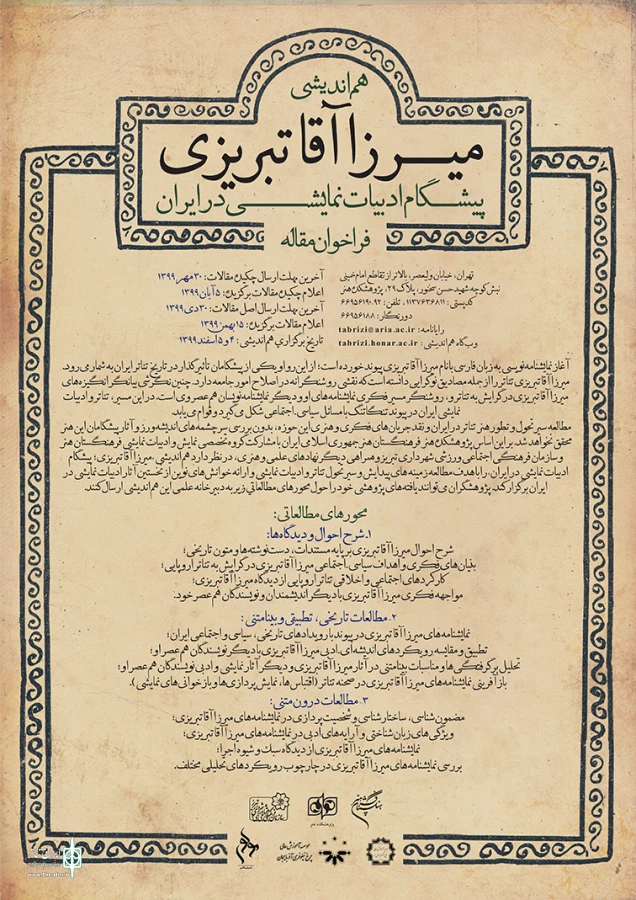 هم‌اندیشی
میرزا آقا تبریزی
پیشگام ادبیات نمایشی در ایران
فراخوان مقاله
تهران، خیابان ولیعصر، بالاتر از تقاطع امام خمینی
نبش کوچه شهید حسن سخنور، پلاک ۲۹، پژوهشکده هنر
کدپستی: ۱۱۳۷۶۳۶۸۱۱، تلفن: ۹۲-۶۶۹۵۶۱۹۰
دورنگار: ۶۶۹۵۶۱۸۸
رایانامه: tabrizi@aria.ac.ir
وبگاه هم‌اندیشی: tabrizi.honar.ac.ir
آخرین مهلت ارسال چکیده مقالات: ۳۰ مهر ۱۳۹۹
اعلام چکیده مقالات برگزیده: ۵ آبان ۱۳۹۹
آخرین مهلت ارسال اصل مقالات: ۳۰ دی ۱۳۹۹
اعلام مقالات برگزیده: ۱۵ بهمن ۱۳۹۹
تاریخ برگزاری هم‌اندیشی: ۴ و ۵ اسفند ۱۳۹۹
آغاز نمایشنامه‌نویسی به زبان فارسی با نام میرزا آقا تبریزی پیوند خورده است؛ از این رو او یکی از پیشگامان تأثیرگذار در تاریخ تئاتر ایران به شمار می‌رود.
میرزا آقا تبریزی تئاتر را از جمله مصادیق نوگرایی دانسته است که نقشی روشنگرانه در اصلاح امور جامعه دارد. چنین نگرشی بیانگر انگیزه‌های
میرزا آقا تبریزی در گرایش به تئاتر و، روشنگر مسیر فکری نمایشنامه‌های او و دیگر نمایشنامه‌نویسان هم عصر وی است. در این مسیر، تئاتر و ادبیات
نمایشی ایران در پیوند تنگاتنگ با مسائل سیاسی، اجتماعی شکل می‌گیرد و قوام می‌یابد.
مطالعه سیر تحول و تطور هنر تئاتر در ایران و نقد جریان‌های فکری و هنری این حوزه، بدون بررسی سرچشمه‌های اندیشه‌ورز و آثار پیشگامان این هنر
محقق نخواهد شد. بر این اساس پژوهشکده هنر فرهنگستان هنر جمهوری اسلامی ایران با مشارکت گروه تخصصی نمایش و ادبیات نمایشی فرهنگستان هنر
و سازمان فرهنگی اجتماعی ورزشی شهرداری تبریز و همراهی دیگر نهادهای علمی و هنری، در نظر دارد هم‌اندیشی «میرزا آقا تبریزی؛ پیشگام
ادبیات نمایشی در ایران» را با هدف مطالعه زمینه‌های پیدایش و سیر تحول تئاتر و ادبیات نمایشی و ارائه خوانش‌های نوین از نخستین آثار ادبیات نمایشی در
ایران برگزار کند. پژوهشگران می‌توانند یافته‌های پژوهشی خود را حول محورهای مطالعاتی زیر به دبیرخانه علمی این هم‌اندیشی ارسال کنند.
محورهای مطالعاتی:
۱. شرح احوال و دیدگاه‌ها:
شرح احوال میرزا آقا تبریزی بر پایه مستندات، دست‌نوشته‌ها و متون تاریخی؛
بنیان‌های فکری و اهداف سیاسی، اجتماعی میرزا آقا تبریزی در گرایش به تئاتر اروپایی؛
کارکردهای اجتماعی و اخلاقی تئاتر اروپایی از دیدگاه میرزا آقا تبریزی؛
مواجهه فکری میرزا آقا تبریزی با دیگر اندیشمندان و نویسندگان هم عصر خود.
۲. مطالعات تاریخی، تطبیقی و بینامتنی:
نمایشنامه‌های میرزا آقا تبریزی در پیوند با رویدادهای تاریخی، سیاسی و اجتماعی ایران؛
تطبیق و مقایسه رویکردهای اندیشه‌ای، ادبی میرزا آقا تبریزی با دیگر نویسندگان هم عصر او؛
تحلیل برگرفتگی‌ها و مناسبات بینامتنی در آثار میرزا آقا تبریزی و دیگر آثار نمایشی و ادبی نویسندگان هم عصر او؛
بازآفرینی نمایشنامه‌های میرزا آقا تبریزی در صحنه تئاتر (اقتباس‌ها، نمایش‌پردازی‌ها و بازخوانی‌های نمایشی).
۳. مطالعات درون متنی:
مضمون شناسی، ساختارشناسی و شخصیت پردازی در نمایشنامه‌های میرزا آقا تبریزی؛
ویژگی‌های زبان شناختی و آرایه‌های ادبی در نمایشنامه‌های میرزا آقا تبریزی؛
نمایشنامه‌های میرزا آقا تبریزی از دیدگاه سبک و شیوه اجرا؛
بررسی نمایشنامه‌های میرزا آقا تبریزی در چارچوب رویکردهای تحلیلی مختلف.
پژوهشکده هنر
موسسه آموزش عالی
چرخ نیلوفری آذربایجان